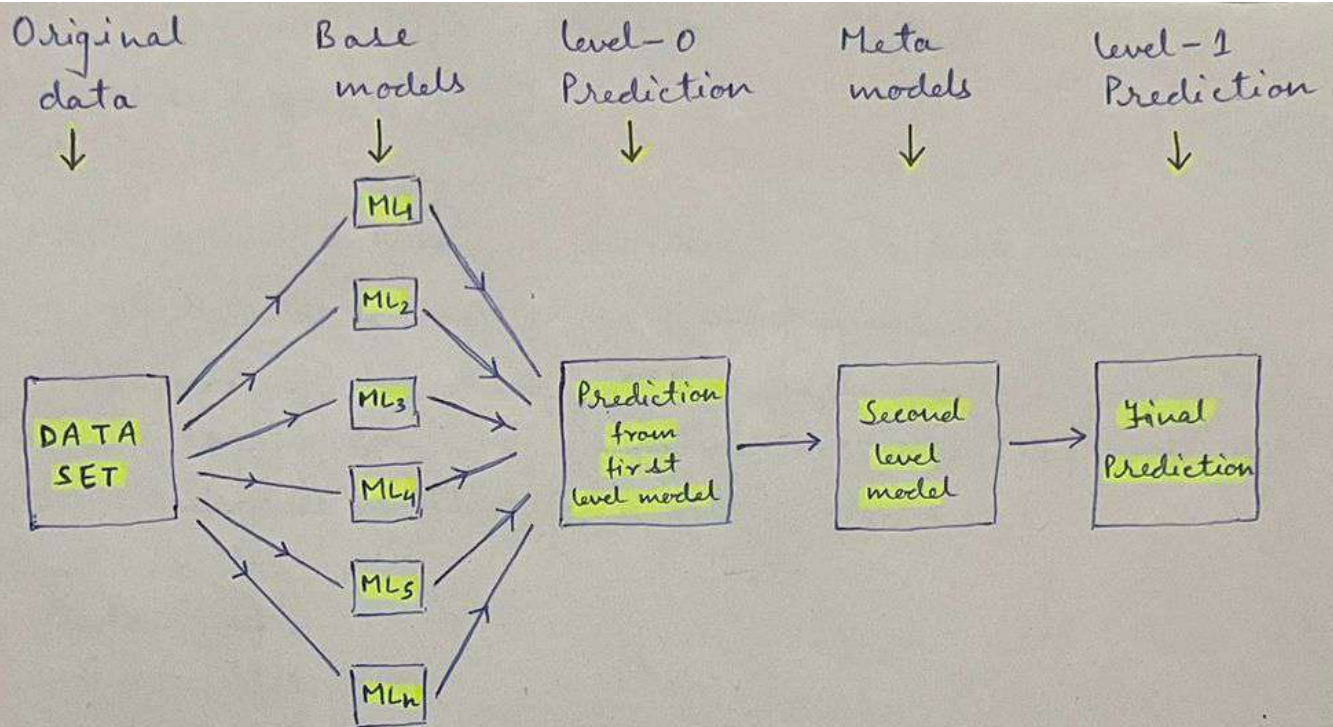 Original
data
Base
models
level-0
Prediction
Meta
models
level-1
Prediction
ML1
ML2
ML3
ML4
ML5
MLn
DATA
SET
Prediction
from
first
level model
Second
level
model
Final
Prediction